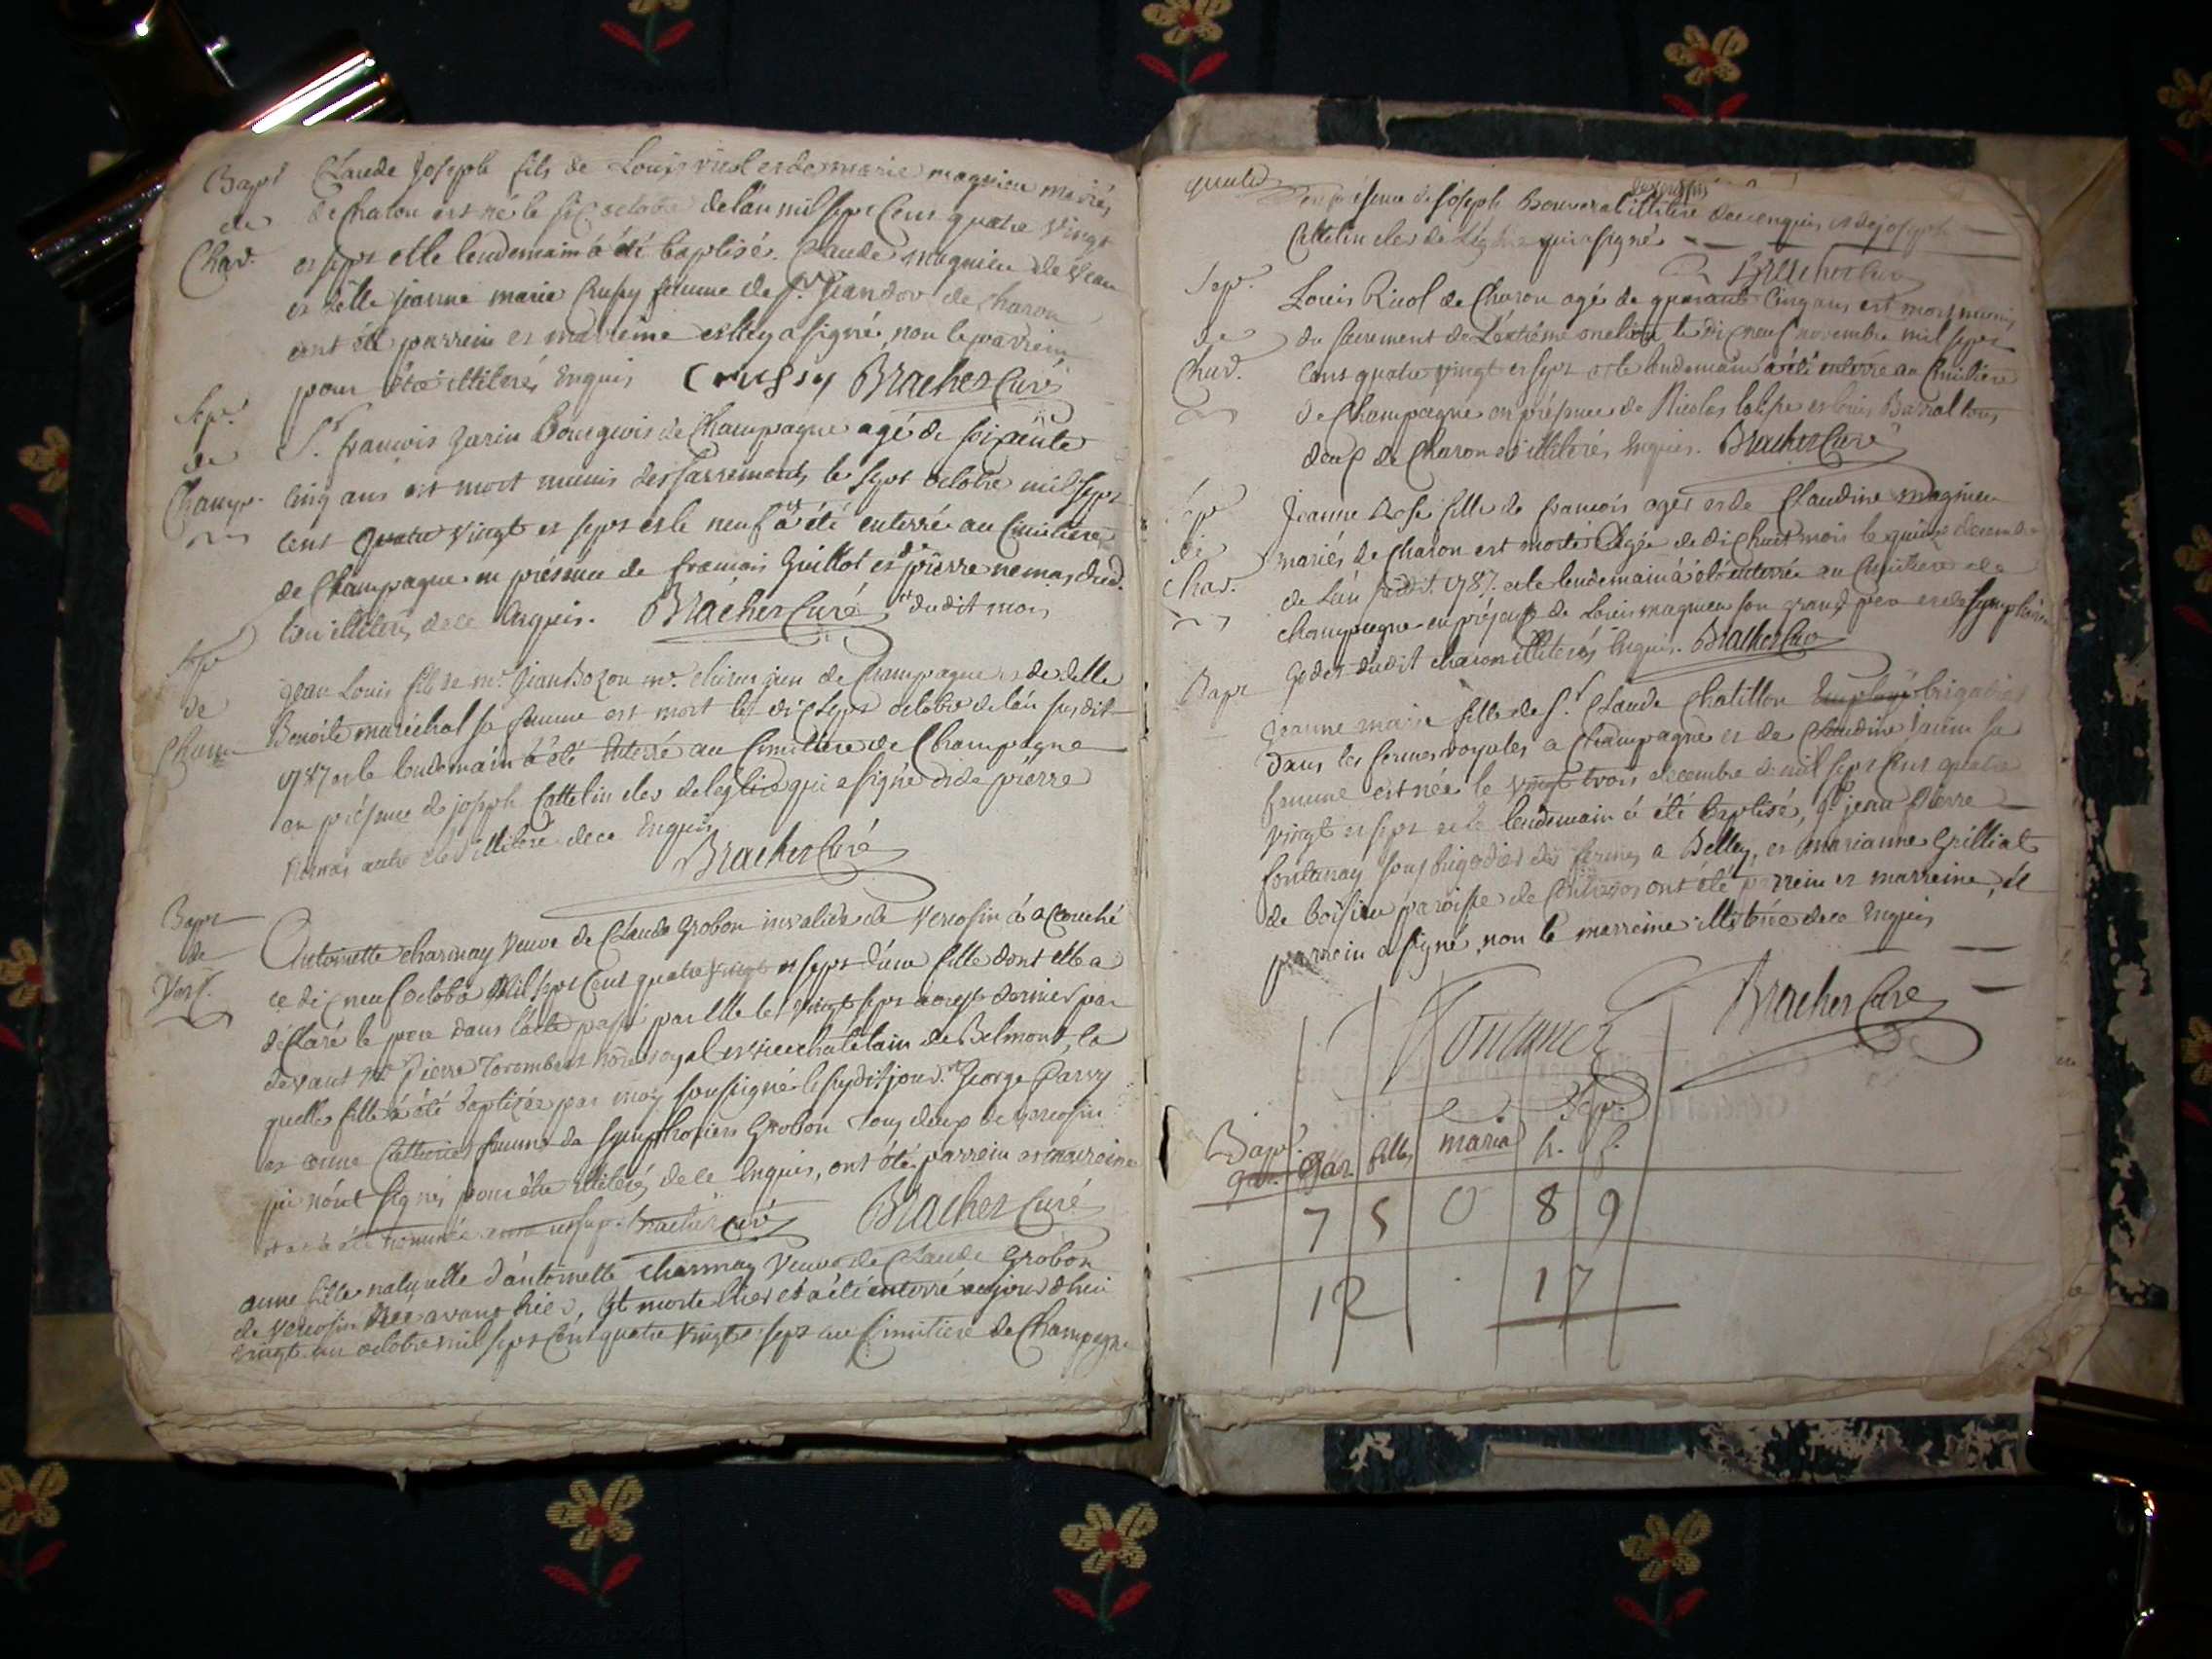 Bapt
de
Char.
Claude Joseph fils de Louis rivol et de marie magnieu mariés
de Charon est né le six octobre de l'an mil sept cent quatre vingt
et sept et le lendemain a été baptisé. Claude magnieu de
et delle jeanne marie Crussy femme de sr. de Charon
ont été parrein et marreine elle y a signé, non le parrein
pour être illiteré, Enquis Crussy Bracher Curé
Sep.
de
Champ.
Sr. françois Jarin Bourgeois de Champagne agé de soixante
cinq ans est mort munis des sacrements le sept octobre mil sept
cent quatre vingt et sept et le neuf a été enterré au Cimitiere
de Champagne en présence de francois Guillot et de pierre nemas dud.
lieu illiterés de ce Enquis. Bracher Curé dudit mois
Sep
de
Cham
Jean Louis fils de mr. Jean Bozon mr. chirurgien de Champagne et de delle
Benoite maréchal sa femme est mort le dix sept octobre de l'an susdit
1787 et le lendemain a été enterré au Cimitiere de Champagne
en présence de joseph Cattelin clerc de l'eglise qui a signé et de pierre
nemas autre illiteré de ce Enquis
Bracher Curé
Bapt
de
Vers.
Antoinette charmay veuve de Claude Grobon invalide de Vercosin a accouché
ce dix neuf octobre mil sept cent quatre vingt et sept d'une fille dont elle a
déclaré le pere dans l'acte passé par elle le vingt sept aoust dernier par
devant Me Pierre Torombert nore royal et vice chatelain de Belmont, la
quelle fille a été baptisée par moy soussigné le susdit jour. George Parry
et anne femme de symphorien Grobon tous deux de vercosin
qui n'ont signés pour être illiterés de ce Enquis, ont été parrein et marreine
et a été nommée anne Bracher curé Bracher Curé
anne fille naturelle d'antoinette charmay Veuve de Claude Grobon
de Vercosin née avant hier, est morte hier et a été enterré aujourd'hui
vingt un octobre mil sept cent quatre vingt et sept au Cimitiere de Champagne
en présence de joseph Bouverat illiteré de ce enquis et de joseph
Cattelin clerc de l'église qui a signé
Bracher Curé
Sep.
de
Char.
Louis Rivol de Charon agé de quarante Cinq ans est mort munis
du sacrement de l'extrême onction le dix neuf novembre mil sept
cent quatre vingt et sept et le lendemain a été enterré au Cimitiere
de Champagne en présence de Nicolas et louis Barral tous
deux de Charon et illiterés Enquis. Bracher Curé
Sep
de
Char.
Jeanne Rose fille de francois oger et de Claudine magnieu
mariés de Charon est morte agée de dix huit mois le quinze decembre
de l'an susdit 1787. et le lendemain a été enterrée au Cimitiere de
Champagne en présence de Louis magnieu son grand pere et de symphorien
Godet dudit charon illiterés Enquis. Bracher Curé
Bapt
Jeanne marie fille de sr. Claude Chatillon Employé brigadier
dans les fermes royales a Champagne et de Claudine Jarin sa
femme est née le vingt trois decembre de mil sept cent quatre
vingt et sept et le lendemain a été baptisé, sr jean pierre
fontanay sous brigadier des fermes a Belley, et marianne Grilliat
de boisieu paroisse de Contrevos ont été parrein et marreine, et
parrein a signé, non la marreine illiterée de ce Enquis
Bracher Curé
Sep.
Bapt. Gar. filles maria h. f.
7 5 0 8 9
12 17